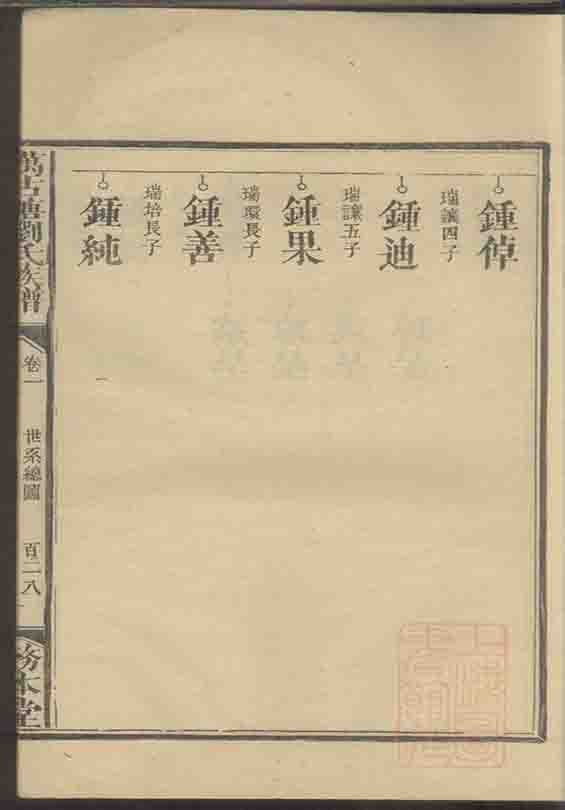 鍾倬
瑞讓四子
鍾迪
瑞讓五子
鍾果
瑞環長子
鍾善
瑞培長子
鍾純
萬古塘劉氏族譜
卷一
世系總圖
百二八
務本堂